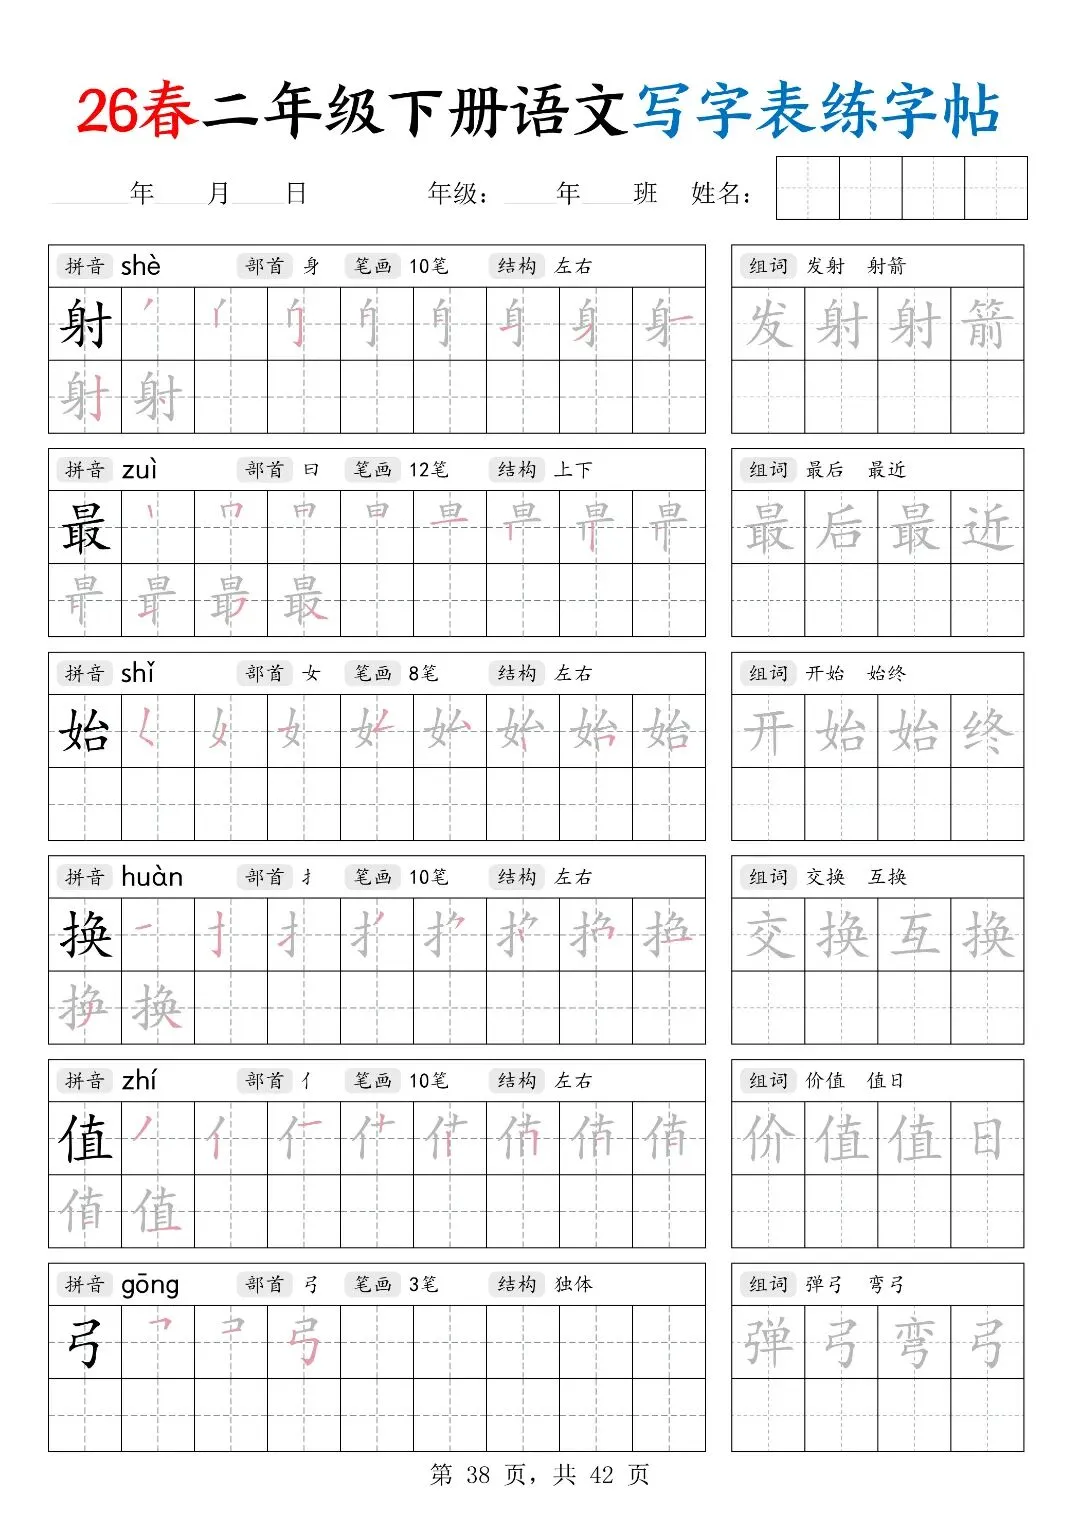 26春二年级下册语文写字表练字帖
年 月 日 年级： 年 班 姓名：
拼音 shè 部首 身 笔画 10笔 结构 左右 组词 发射 射箭
射 发射射箭
射射
拼音 zuì 部首 曰 笔画 12笔 结构 上下 组词 最后 最近
最 最后最近
最
拼音 shǐ 部首 女 笔画 8笔 结构 左右 组词 开始 始终
始 女 始 开始始终
拼音 huàn 部首 扌 笔画 10笔 结构 左右 组词 交换 互换
换 扌 交换互换
换
拼音 zhí 部首 亻 笔画 10笔 结构 左右 组词 价值 值日
值 亻 价值值日
值
拼音 gōng 部首 弓 笔画 3笔 结构 独体 组词 弹弓 弯弓
弓 弓 弹弓弯弓
第 38 页，共 42 页